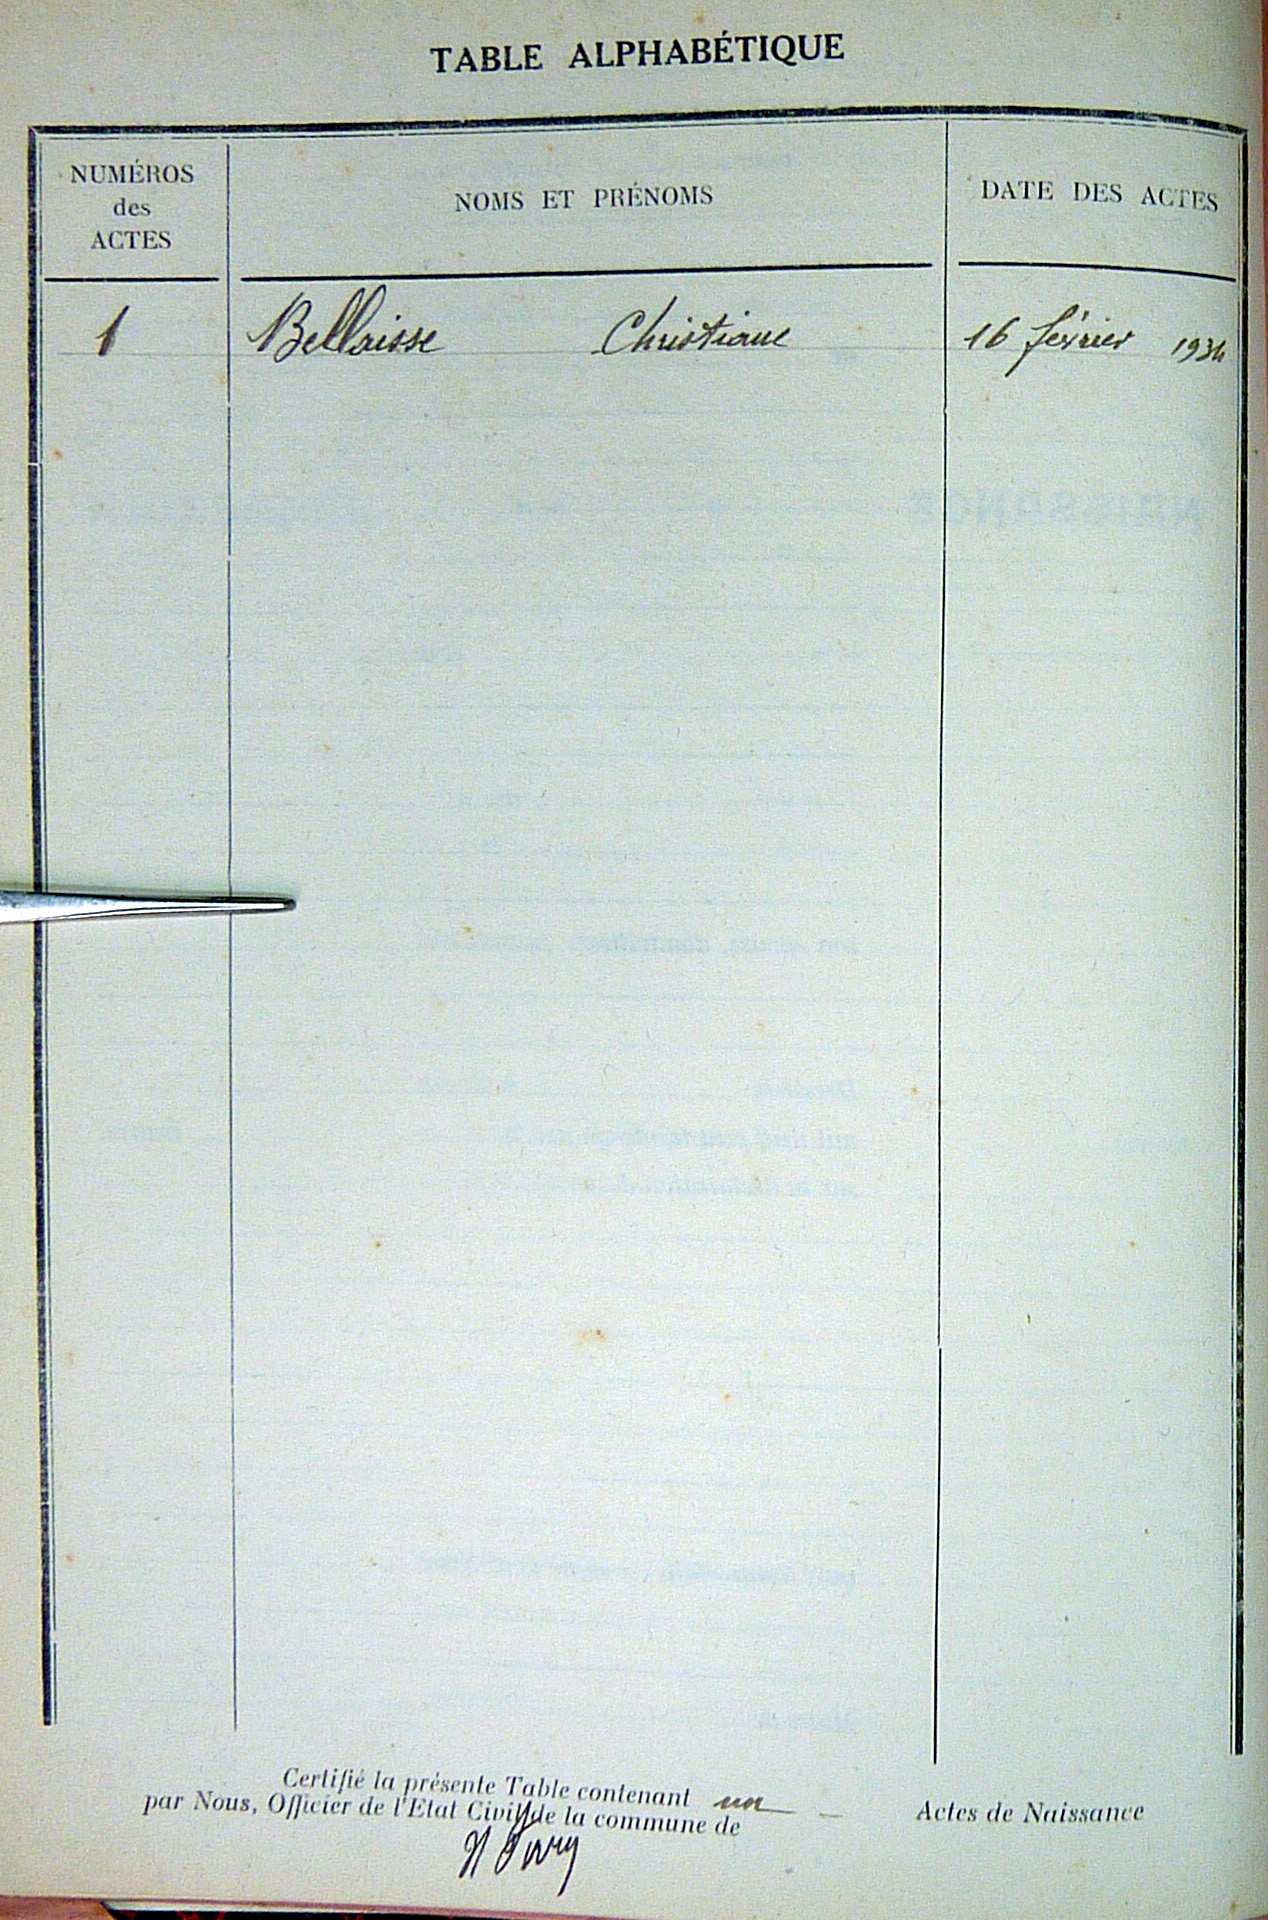 TABLE ALPHABÉTIQUE
NUMÉROS
des
ACTES
NOMS ET PRÉNOMS
DATE DES ACTES
1 Bellaisse Christiane 16 février 1934
Certifié la présente Table contenant un Actes de Naissance
par Nous, Officier de l'Etat Civil de la commune de